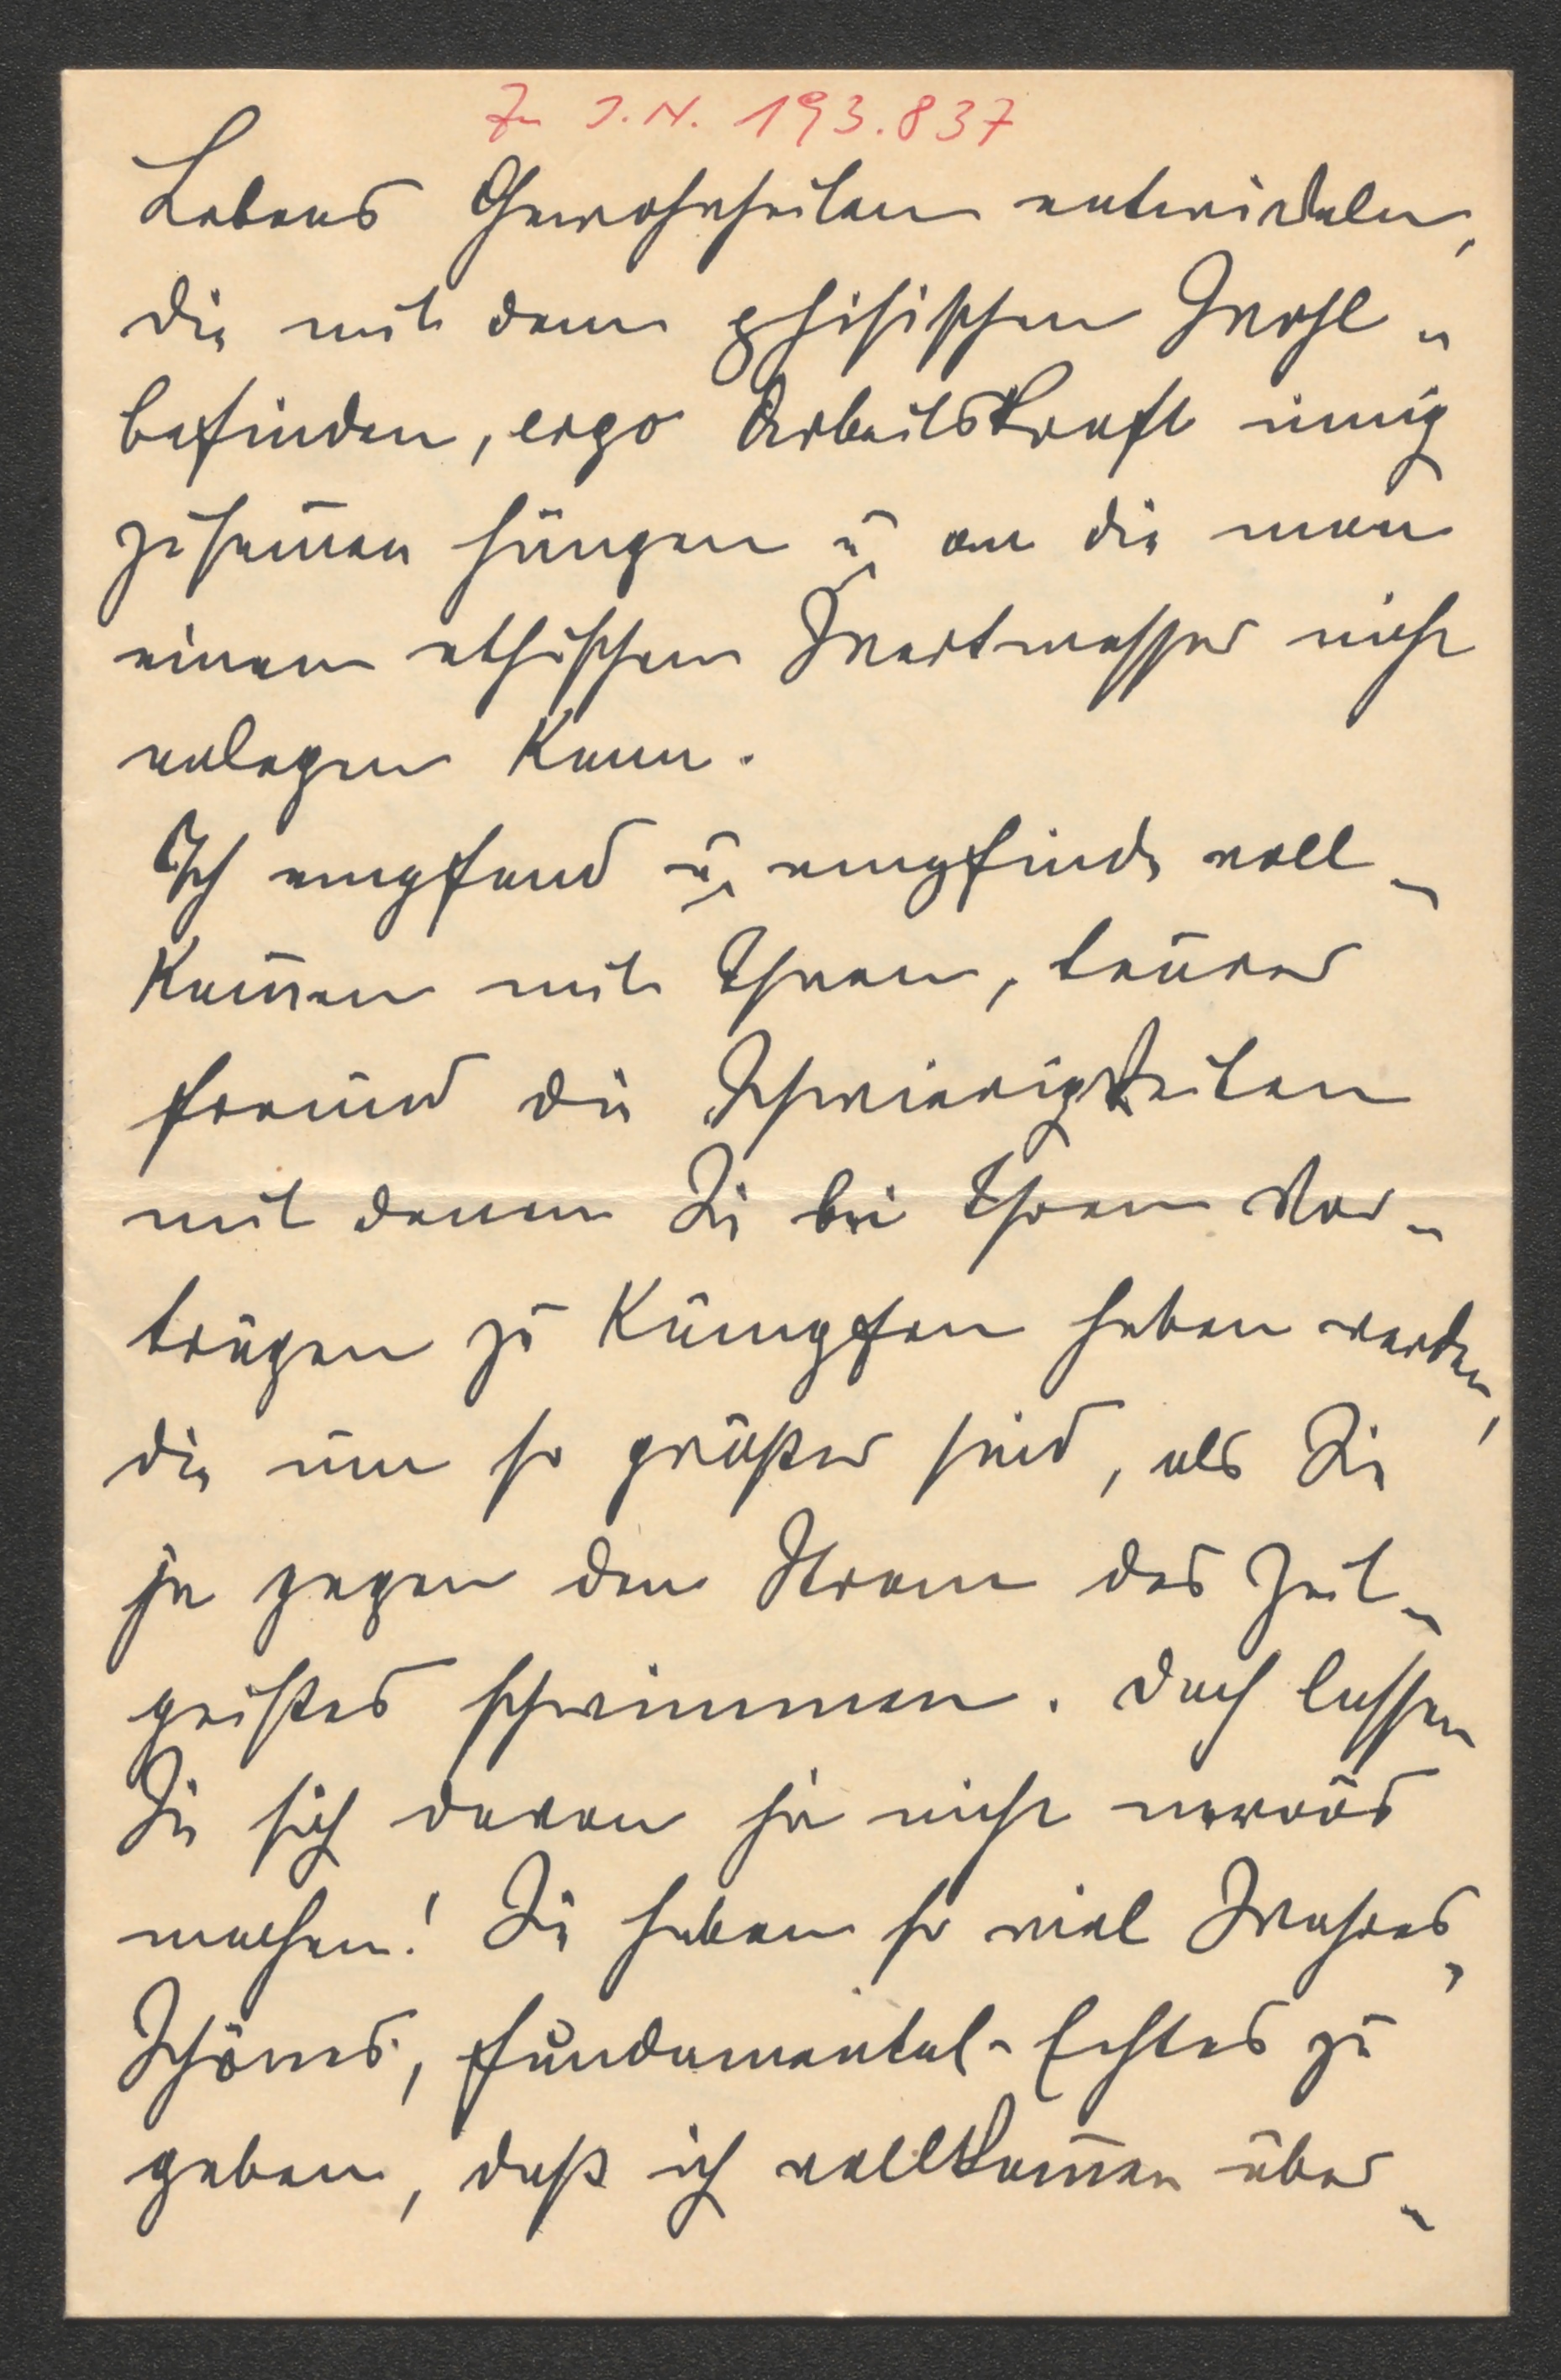 Zu I.N. 193.837
Lebens Gewohnheiten entwickeln,
die mit dem phisischen Wohl-
befinden, ergo Arbeitskraft innig
zusam̅en hängen u. an die man
einen ethischen Wertmesser nicht
anlegen kann.
Ich empfand u. empfinde voll-
kom̅en mit Ihnen, teurer
Freund die Schwierigkeiten
mit denen Sie bei Ihren Vor-
trägen zu kämpfen haben werden,
die um so größer sind, als Sie
ja gegen den Strom des Zeit-
geistes schwimmen. Doch lassen
Sie sich davon ja nicht nervös
machen! Sie haben so viel Wahres,
Schönes, Fundamental-Echtes zu
geben, daß ich vollkom̅en über-